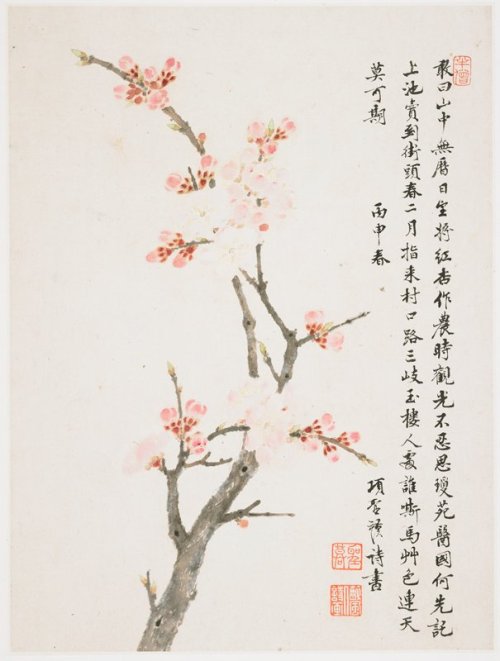 敢曰山中無曆日空將紅杏作農時觀光不忍思瓊苑醫國何先託
上池賣到街頭春二月指來村口路三岐玉樓人處誰嘶馬艸色連天
莫可期
丙申春
項聖謨詩書